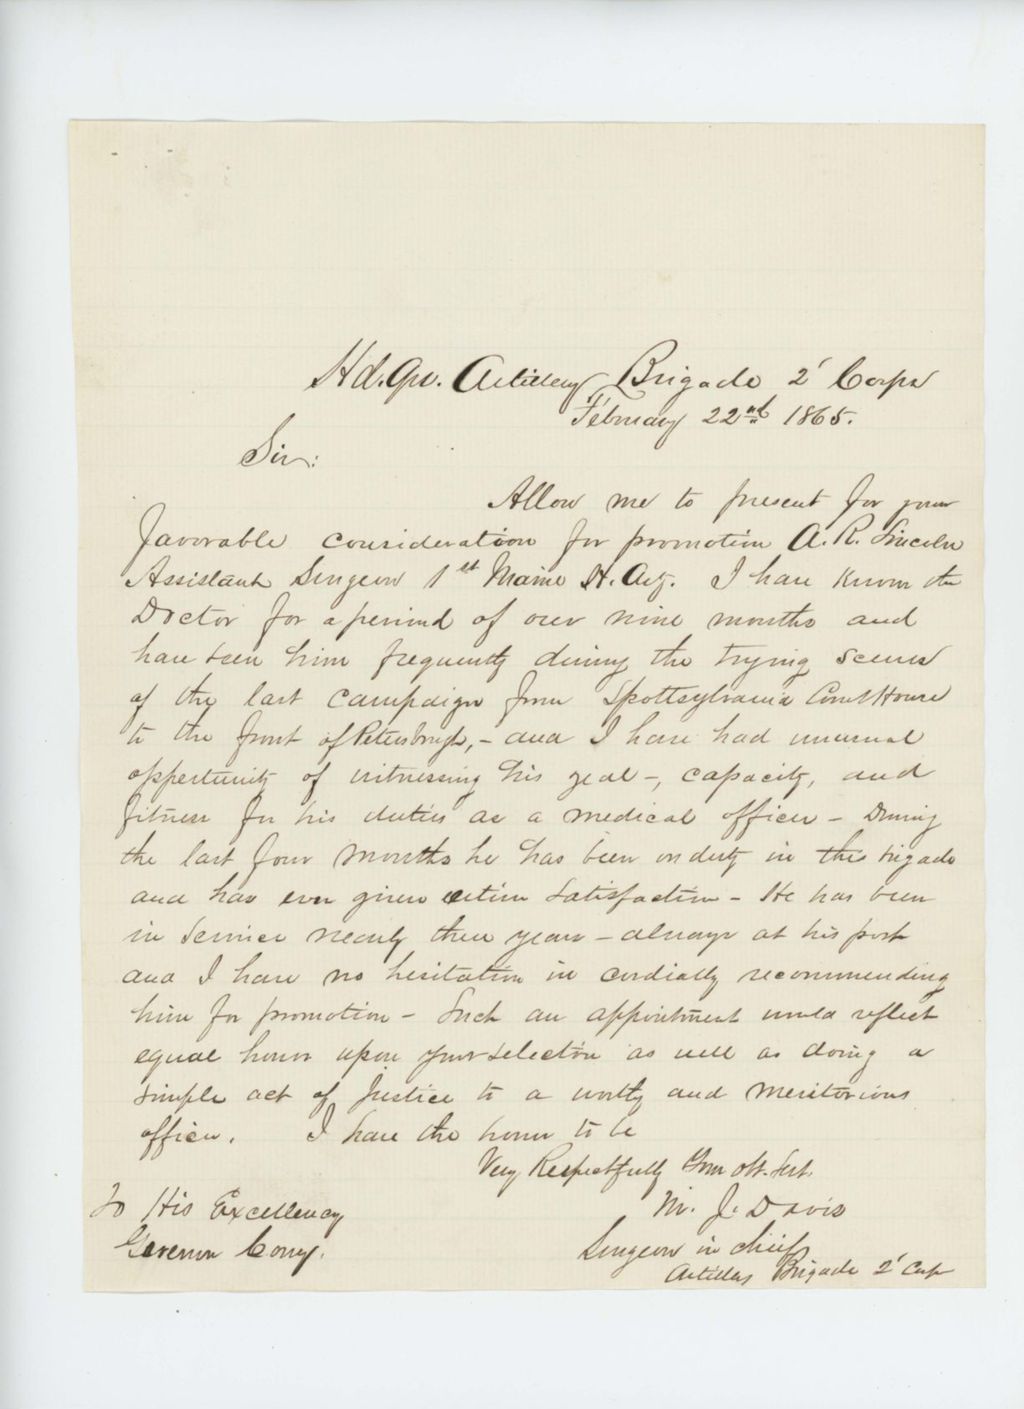 Hd. Qrs. Artillery Brigade 2' Corps
February 22nd 1865.
Sir:
Allow me to present for your
favorable consideration for promotion A. R. Lincoln
Assistant Surgeon 1st Maine H. Arty. I have known the
Doctor for a period of over nine months and
have seen him frequently during the trying scenes
of the last campaign from Spottsylvania Court House
to the front of Petersburgh, - and I have had unusual
oppertunity of witnessing his zeal -, capacity, and
fitness for his duties as a medical officer - During
the last four months he has been on duty in this brigade
and has ever given entire satisfaction - He has been
in service nearly three years - always at his post
and I have no hesitation in cordially recommending
him for promotion - Such an appointment would reflect
equal honor upon your selection as well as doing a
simple act of Justice to a worthy and meritorious
officer. I have the honor to be
Very Respectfully Your obt. Sert.
M. J. Davis
Surgeon in chief
Artillery Brigade 2' Corps
To His Excellency
Governor Cony.